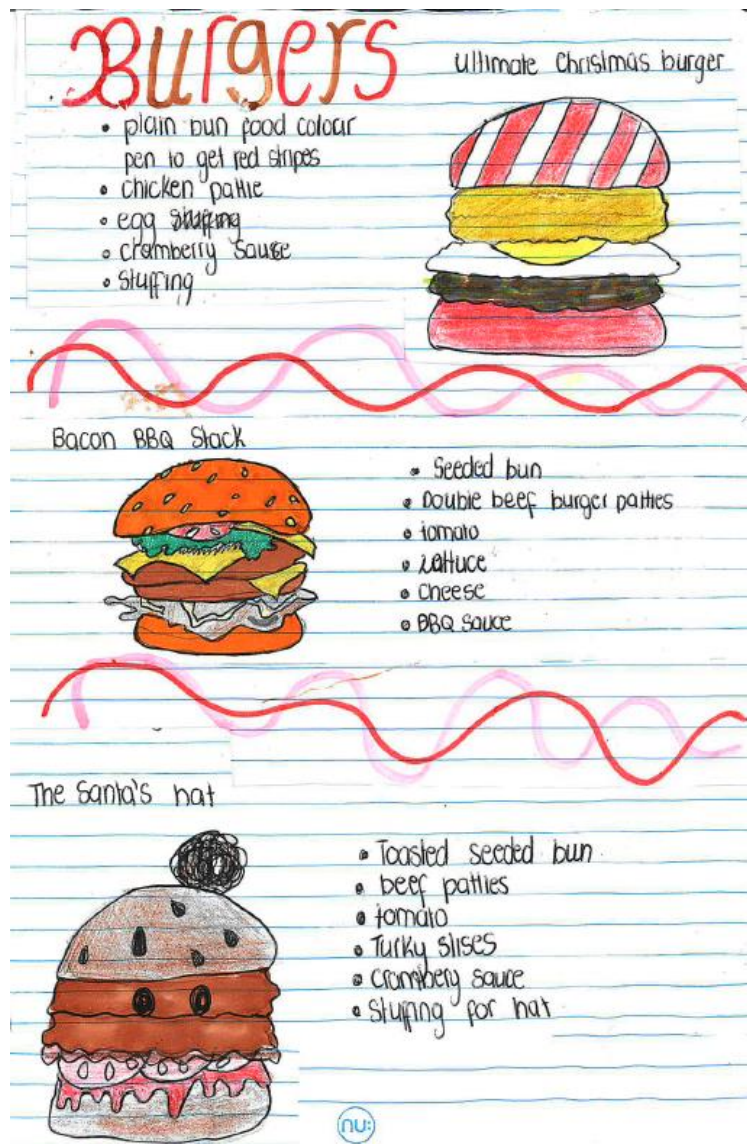 Burgers
Ultimate Christmas burger
• plain bun food colour
pen to get red stripes
• chicken pattie
• egg
• cramberry sause
• stuffing
Bacon BBQ Stack
• Seeded bun
• Double beef burger patties
• tomato
• Lettuce
• Cheese
• BBQ Sauce
The Santa's hat
• Toasted seeded bun
• beef patties
• tomato
• Turky slises
• Crambery sauce
• Stuffing for hat
nu: